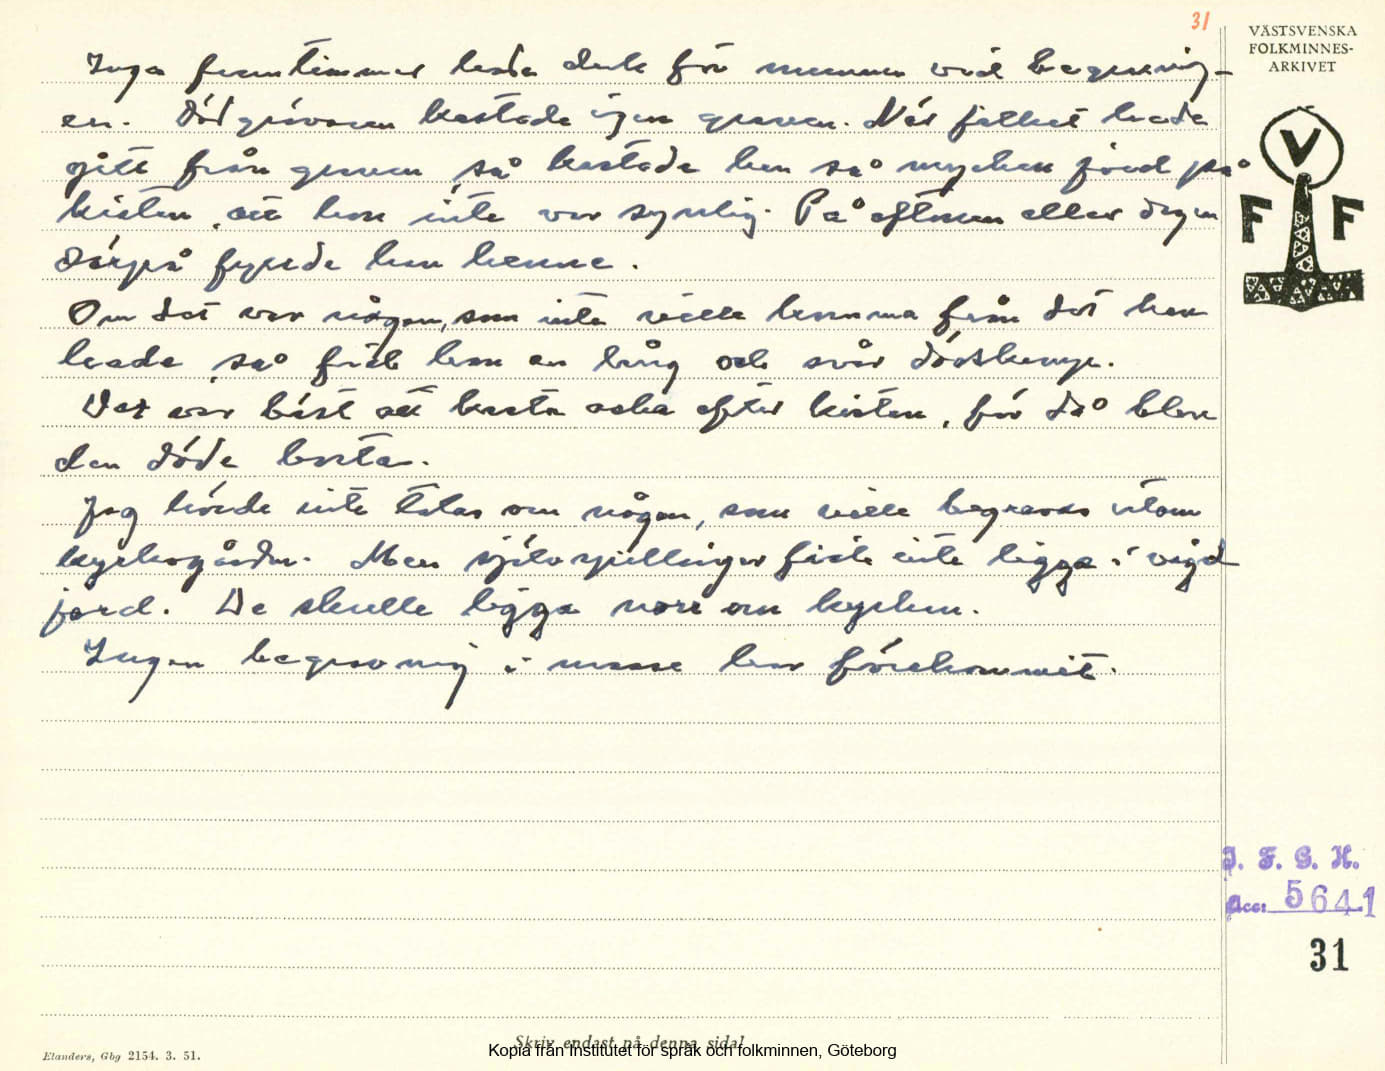 31
VÄSTSVENSKA
FOLKMINNES-
ARKIVET
V
F F
Inga fruntimmer hade duk för munnen vid begravning-
en. Dödgrävaren kastade igen graven. När folket hade
gått från graven, så kastade han så mycken jord på
kisten, att hon inte var synlig. På eftmen eller dagen
därpå fyllde han henne.
Om det var någon, som inte ville komma från det han
hade, så fick han en lång och svår dödskamp.
Det var bäst att kasta aska efter kisten, för då blev
den döde borta.
Jag hörde inte talas om någon, som ville begravas utom
kyrkogården. Men självspillingar fick inte ligga i vigd
jord. De skulle ligga norr om kyrkan.
Ingen begravning i massa har förekommit.
I. F. G. H.
Acc: 5641
31
Skriv endast på denna sida!
Elanders, Gbg 2154. 3. 51.
Kopia från Institutet för språk och folkminnen, Göteborg